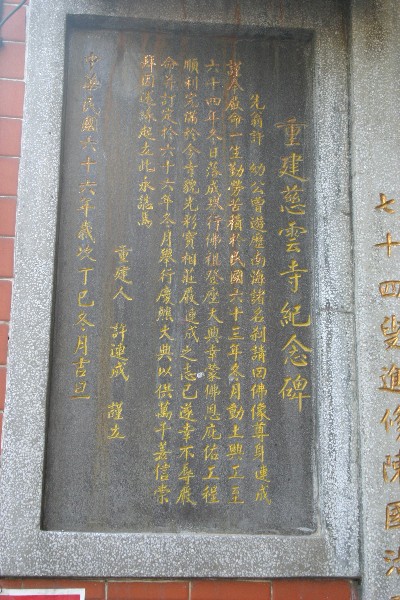 重建慈雲寺紀念碑
先翁許 幼公曾遊歷南海諸名剎請回佛像尊身連成
謹奉嚴命一生勤勞苦積於民國六十三年冬月動土興工至
六十四年冬日落成與行佛祖登座大典幸蒙佛恩庇佑工程
順利完滿於今寺貌光彩寶相莊嚴連成之志已遂幸不辱嚴
命并訂定於六十六年冬月舉行慶典大典以供萬千善信崇
拜因緣起立此永誌焉
重建人 許連成 謹立
中華民國六十六年歲次丁巳冬月吉旦
七十四叟進修陳國